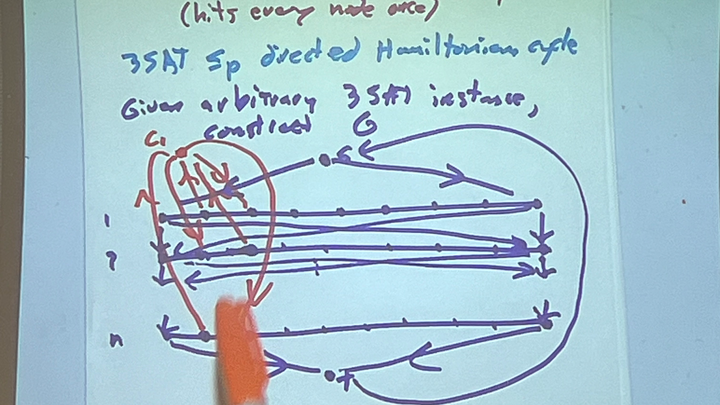 (hits every node once)
3SAT ≤p directed Hamiltonian cycle
Given arbitrary 3SAT instance,
construct G
C1
S
1
2
n
t